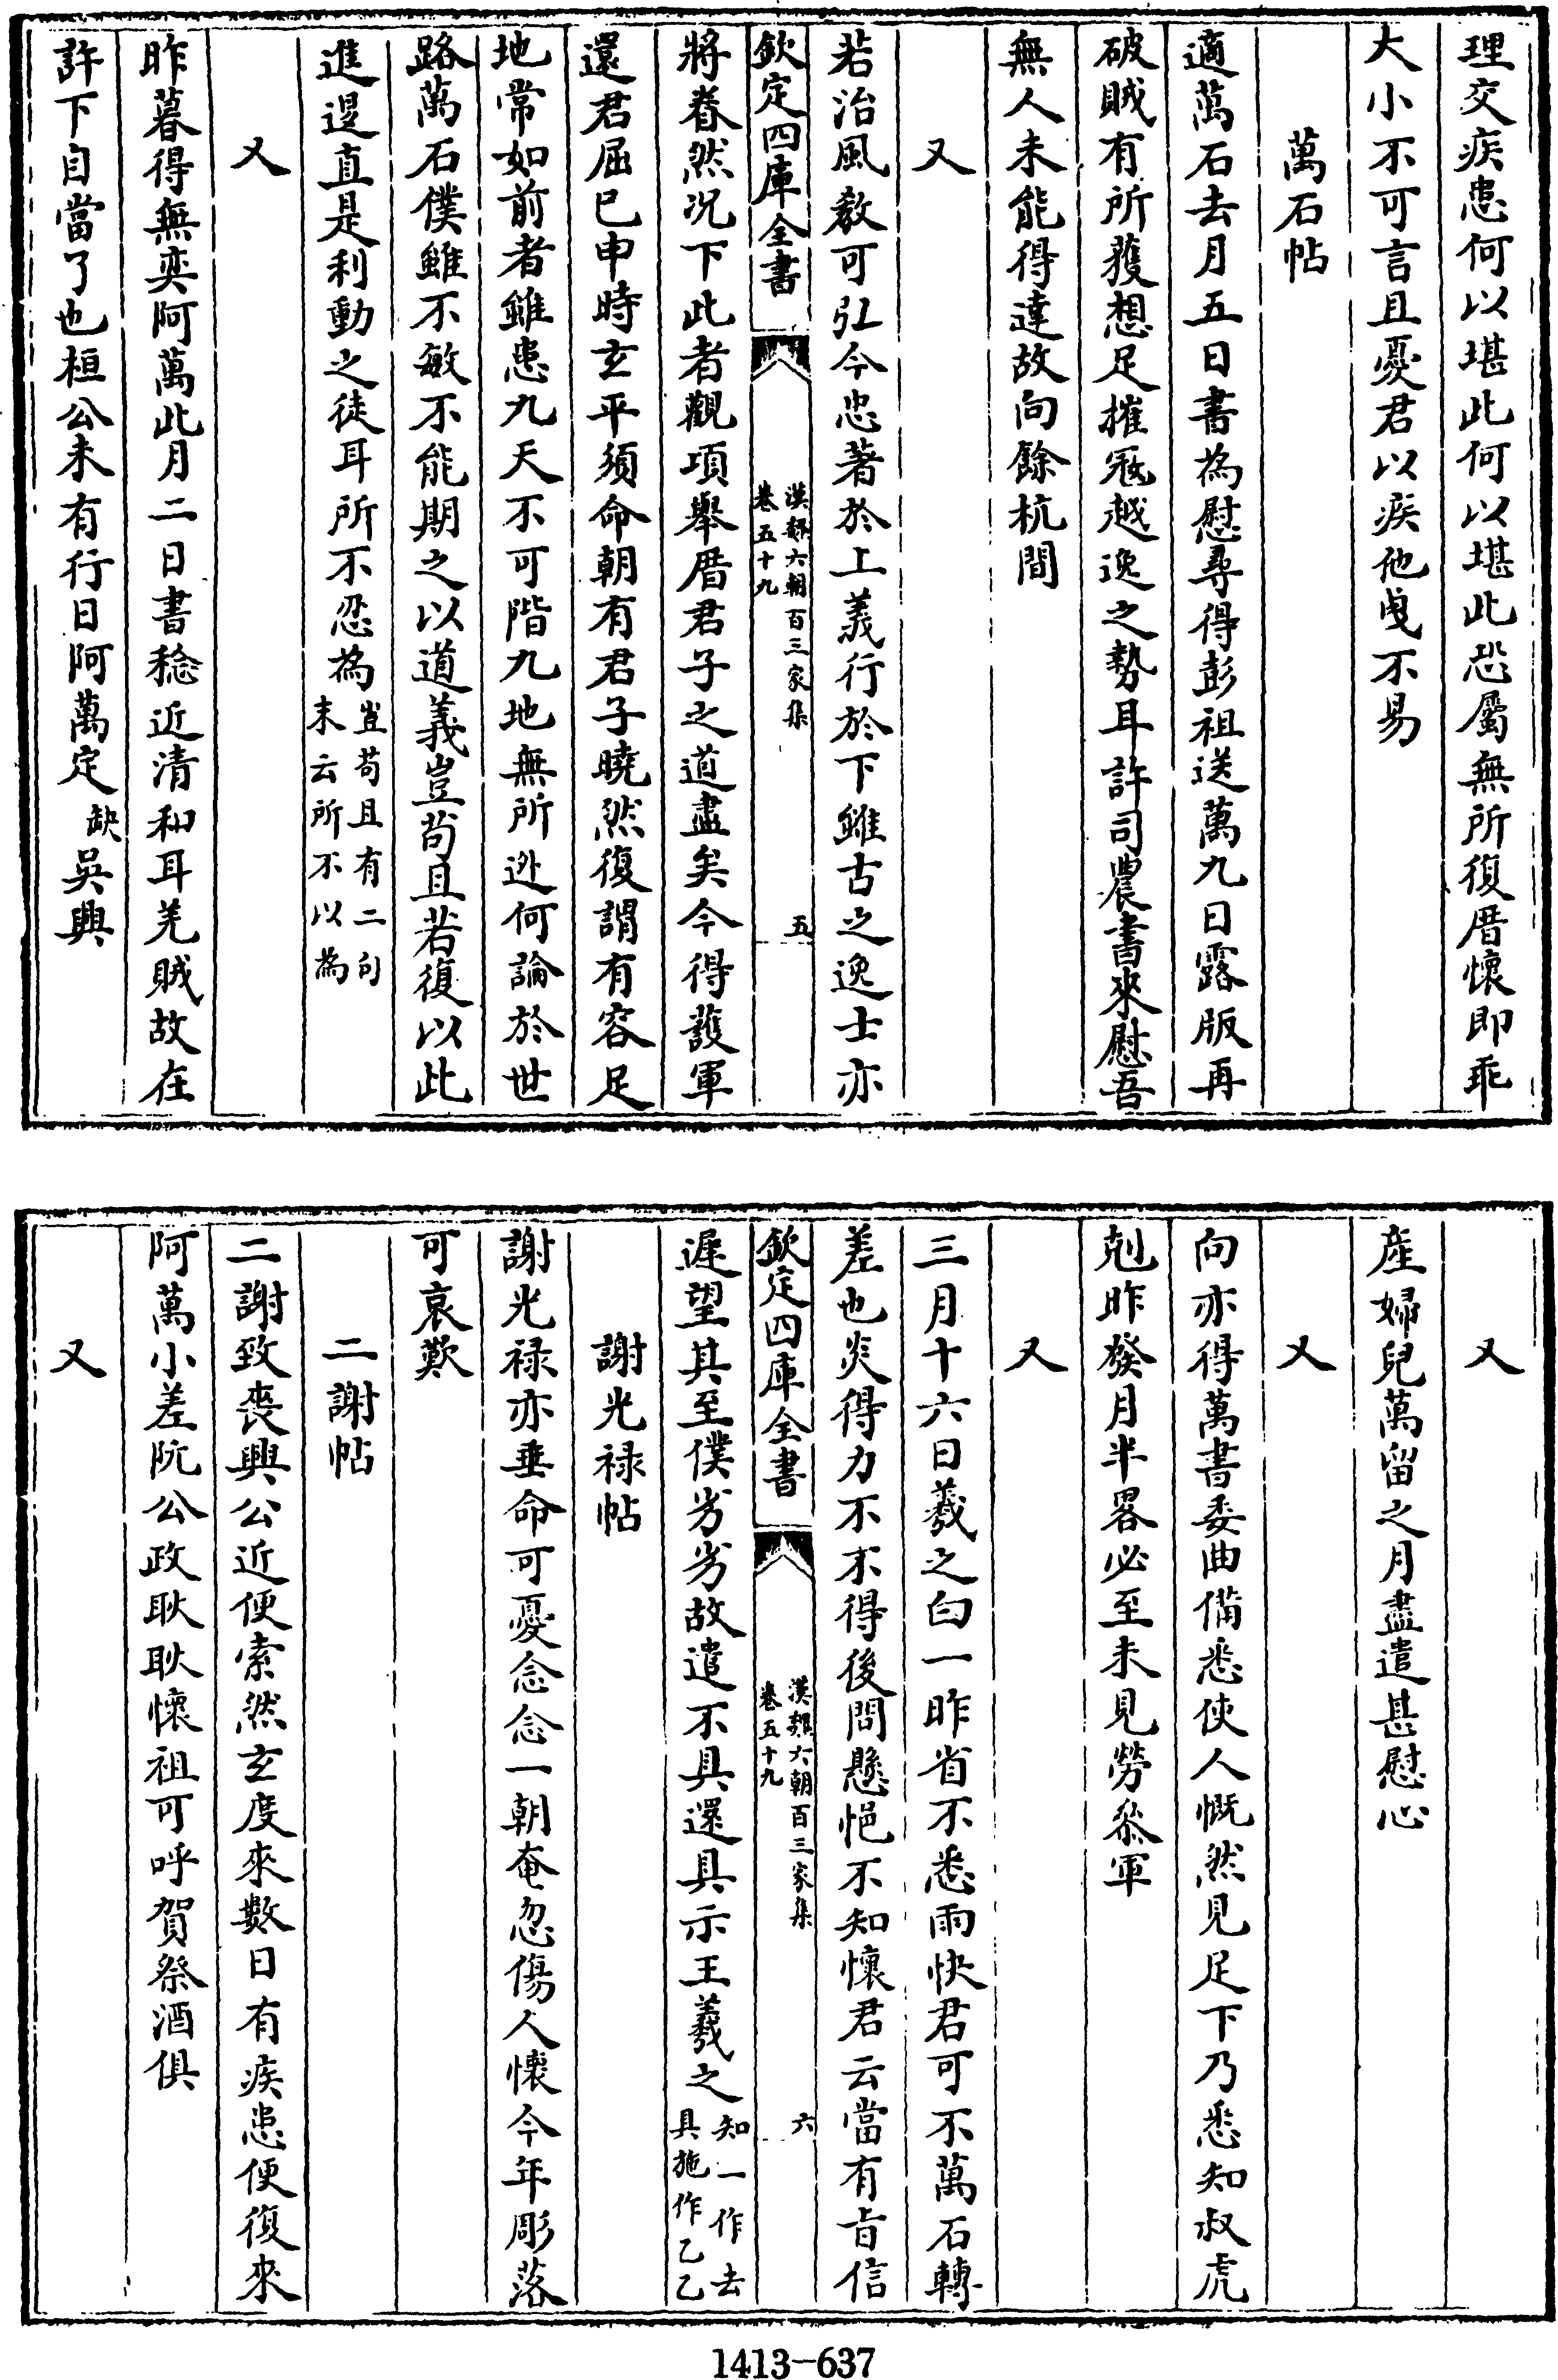 理交疾患何以堪此何以堪此恐屬無所復厝懷即乖
大小不可言且憂君以疾他曳不易
萬石帖
適萬石去月五日書為慰尋得彭祖送萬九日露版再
破賊有所獲想足摧寇越逸之勢耳許司農書來慰吾
無人未能得達故向餘杭間
又
若治風教可弘今忠著於上義行於下雖古之逸士亦
欽定四庫全書
漢魏六朝百三家集
卷五十九
五
將眷然況下此者觀項舉厝君子之道盡矣今得護軍
還君屈已申時玄平須命朝有君子曉然復謂有容足
地常如前者雖患九天不可階九地無所逃何論於世
路萬石僕雖不敏不能期之以道義豈苟且若復以此
進退直是利動之徒耳所不忍為豈苟且有二句
末云所不以為
又
昨暮得無奕阿萬此月二日書稔近清和耳羌賊故在
許下自當了也桓公未有行日阿萬定缺吳興
又
產婦兒萬留之月盡遣甚慰心
又
向亦得萬書委曲備悉使人慨然見足下乃悉知叔虎
剋昨發月半畧必至未見勞叅軍
又
三月十六日羲之白一昨省不悉雨快君可不萬石轉
差也災得力不不得後問懸悒不知懷君云當有旨信
欽定四庫全書
漢魏六朝百三家集
卷五十九
六
遲望其至僕劣劣故遣不具還具示王羲之知一作去
具施作乙乙
謝光祿帖
謝光祿亦垂命可憂念念一朝奄忽傷人懷今年彫落
可哀歎
二謝帖
二謝致喪興公近便索然玄度來數日有疾患便復來
阿萬小差阮公政耿耿懷祖可呼賀祭酒俱
又
1413-637